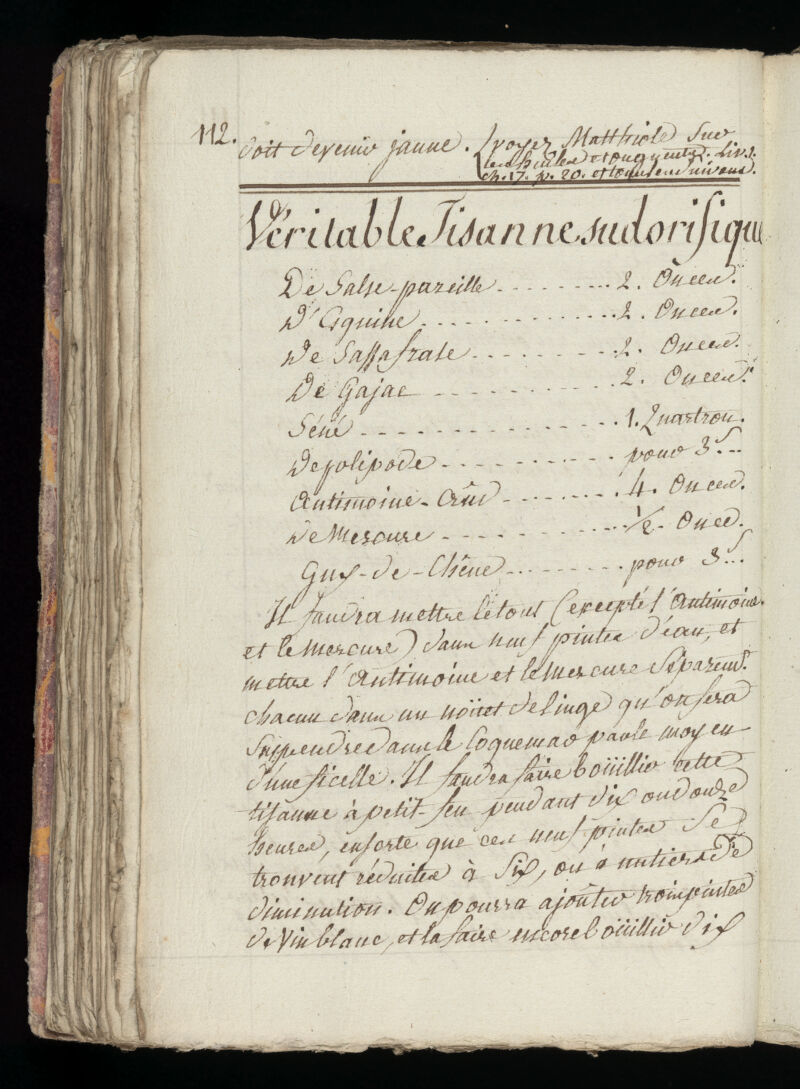 112.
doit devenir jaune. (voyez Matthiole sur
les huiles et onguents. Liv. 1.
ch. 17. p. 20. et
Véritable Tisanne sudorifique
De Salse-pareille - - - - - - - - 2. Onces.
D'Esquine - - - - - - - - - - - 2. Onces.
De Sassafrate - - - - - - - - - 2. Onces.
De Gajac - - - - - - - - - - - 2. Onces.
Séné - - - - - - - - - - - - - 1. Quartron.
De polipode - - - - - - - - - - pour 3 s...
Antimoine-Crûd - - - - - - - - 4. Onces.
De Mercure - - - - - - - - - - 1/2. Once.
Guy-de-Chêne - - - - - - - - pour 3 s...
Il faudra mettre le tout (excepté l'Antimoine
et le mercure) dans neuf pintes d'eau, et
mettre l'Antimoine et le mercure séparemt.
chacun dans un noüet de linge qu'on fera
suspendre dans le Coquemar par le moyen
d'une ficelle. Il faudra faire boüillir cette
tisanne à petit-feu pendant dix ou douze
heures, ensorte que ces neuf pintes se
trouvent réduites à six, ou à un tiers de
diminution. On pourra ajoûter trois pintes
de Vin blanc, et la faire encore boüillir dix